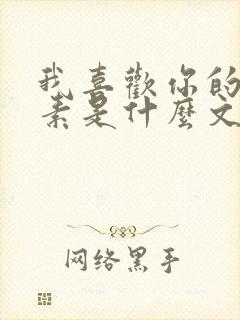 我喜歡你的
素是什麼文
网络黑手